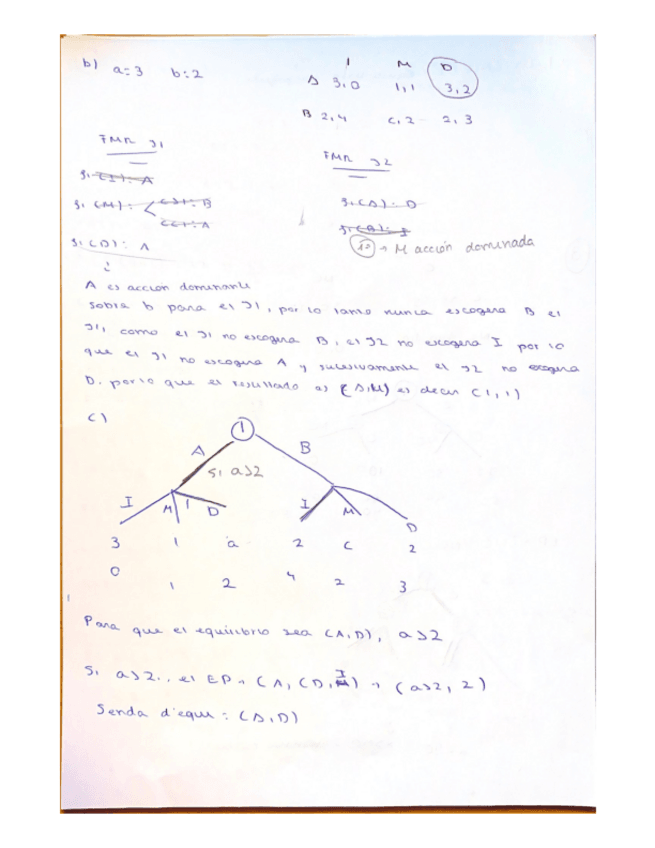 b) a=3 b=2
I M D
A 3,0 1,1 3,2
B 2,4 c,2 2,3
FMR J1
FMR J2
si (I): A
si (M): < c>1: B
c<1: A
si (D): A
si (A): D
si (B): I
→ M acción dominada
A es acción dominante
sobre b para el J1, por lo tanto nunca escogera B el
J1, como el J1 no escogera B, el J2 no escogera I por lo
que el J1 no escogera A y sucesivamente el J2 no escogera
D. por lo que el resultado es (A,M) es decir (1,1)
c)
1
A B
si a>2
I M D I M D
3 1 a 2 c 2
0 1 2 4 2 3
Para que el equilibrio sea (A,D), a>2
Si a>2., el EP → (A, (D, I) → (a>2, 2)
Senda d'equi: (A,D)